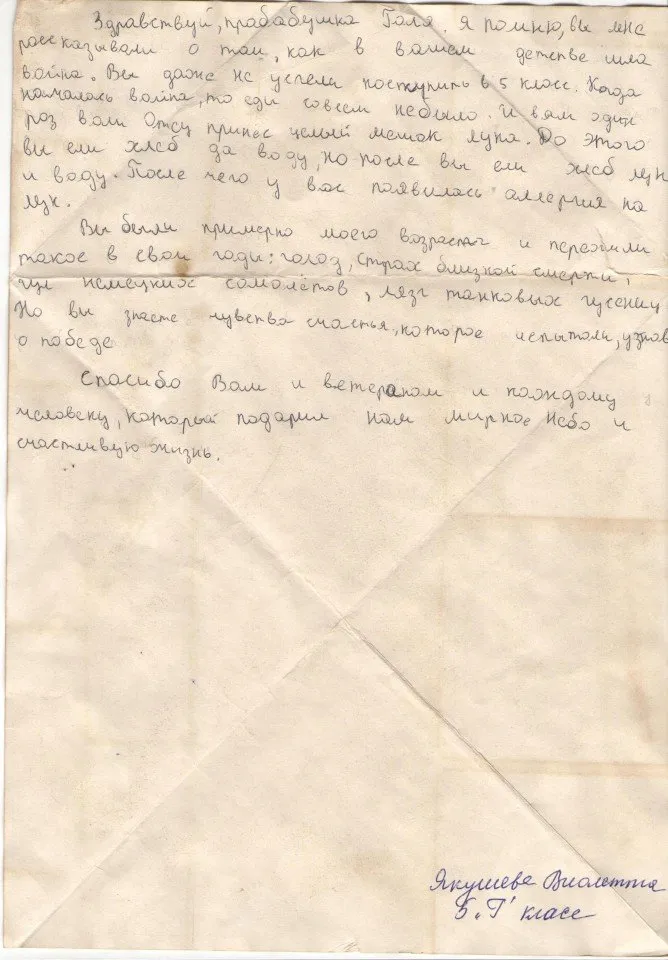 Здравствуй, прабабушка Галя. Я помню, вы мне
рассказывали о том, как в вашем детстве шла
война. Вы даже не успели поступить в 5 класс. Когда
началась война, то еди совсем небыло. И вам один
роз ваш Отец принес целый мешок лука. До этого
вы ели хлеб да воду, но после вы ели хлеб лук
и воду. После чего у вас появилась аллергия на
лук.
Вы были примерно моего возраста и пережили
такое в свои годи: голод, страх близкой смерти,
гул немецких самолётов, лязг танковых гусениц
Но вы знаете чувства счастья, которое испытали, узнав
о победе
Спасибо Вам и ветераном и каждому
человеку, который подарил нам мирное Небо и
счастливую жизнь.
Якушева Виолетта
5 "Г" класс